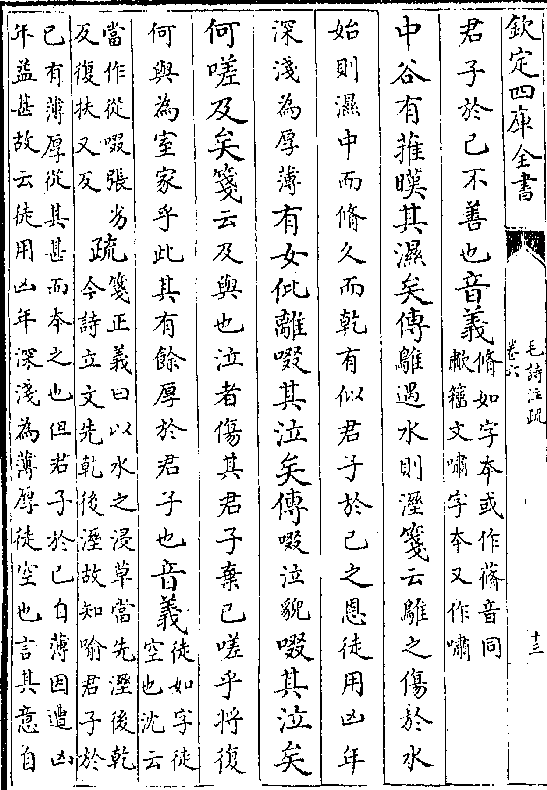 欽定四庫全書
毛詩注疏
卷六
十三
君子於己不善也音義脩如字本或作蓨音同
歗籀文嘯字本又作嘯
中谷有蓷暵其濕矣傳鵻遇水則溼箋云鵻之傷於水
始則濕中而脩久而乾有似君子於己之恩徒用凶年
深淺為厚薄有女仳離啜其泣矣傳啜泣貌啜其泣矣
何嗟及矣箋云及與也泣者傷其君子棄己嗟乎將復
何與為室家乎此其有餘厚於君子也音義徒如字徒
空也沈云
當作從啜張劣
反復扶又反疏箋正義曰以水之浸草當先溼後乾
今詩立文先乾後溼故知喻君子於
己有薄厚從其甚而本之也但君子於己自薄因遭凶
年益甚故云徒用凶年深淺為薄厚徒空也言其意自